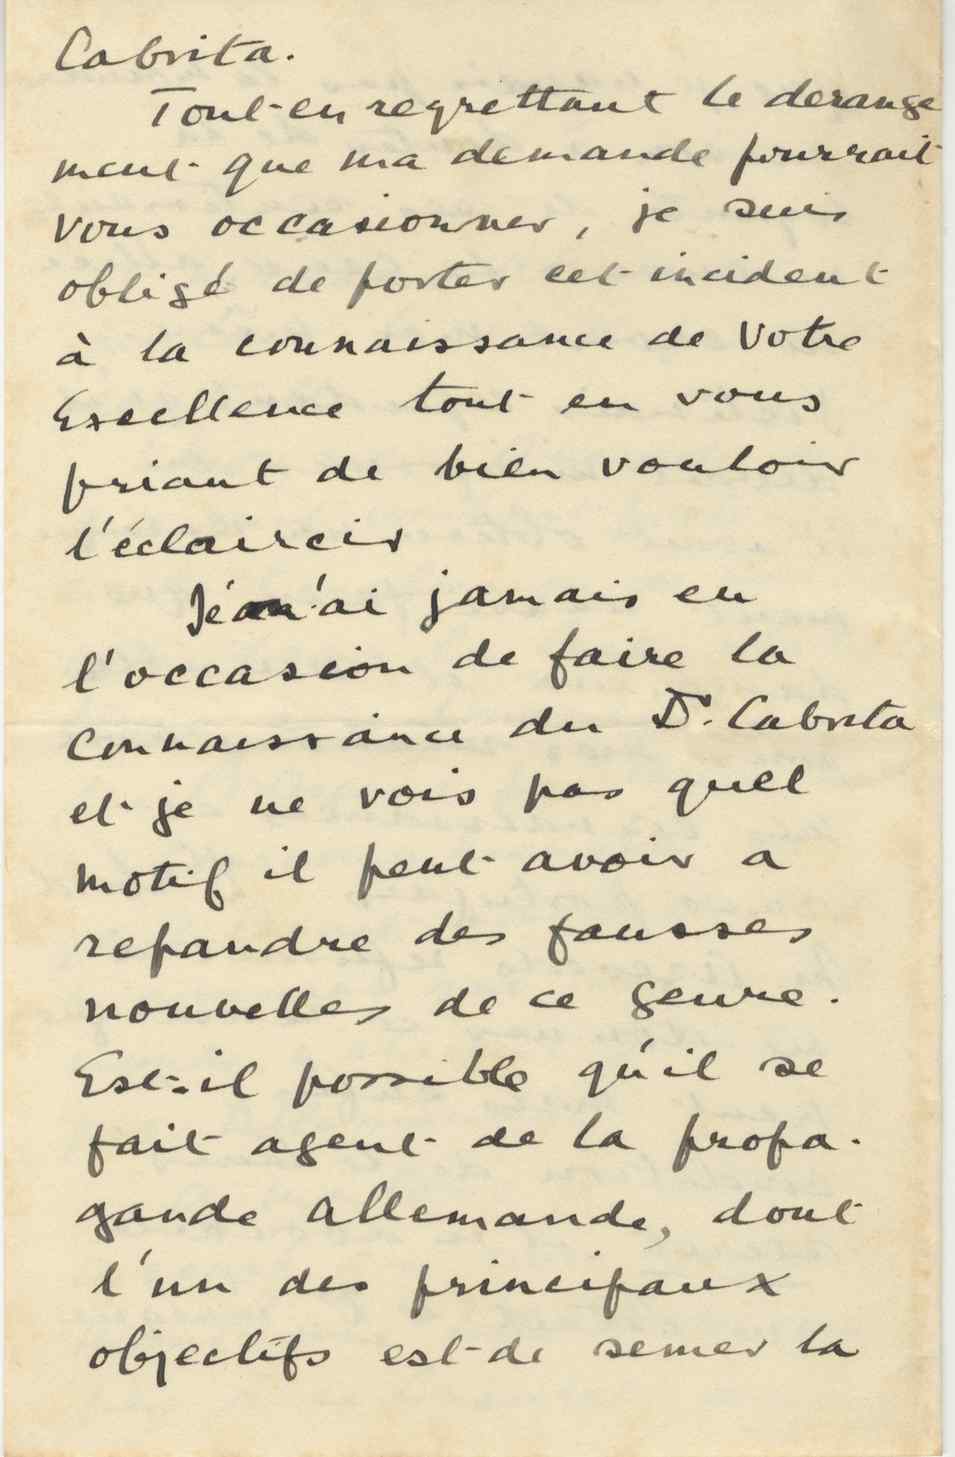 Cabrita.
Tout en regrettant le derange
ment que ma demande pourrait
vous occasionner, je suis
obligé de porter cet incident
à la connaissance de Votre
Excellence tout en vous
priant de bien vouloir
l'éclaircir
Je n'ai jamais eu
l'occasion de faire la
connaissance du Dr. Cabrita
et je ne vois pas quel
motif il peut avoir a
repandre des fausses
nouvelles de ce genre.
Est-il possible qu'il se
fait agent de la propa-
gande allemande, dont
l'un des principaux
objectifs est de semer la